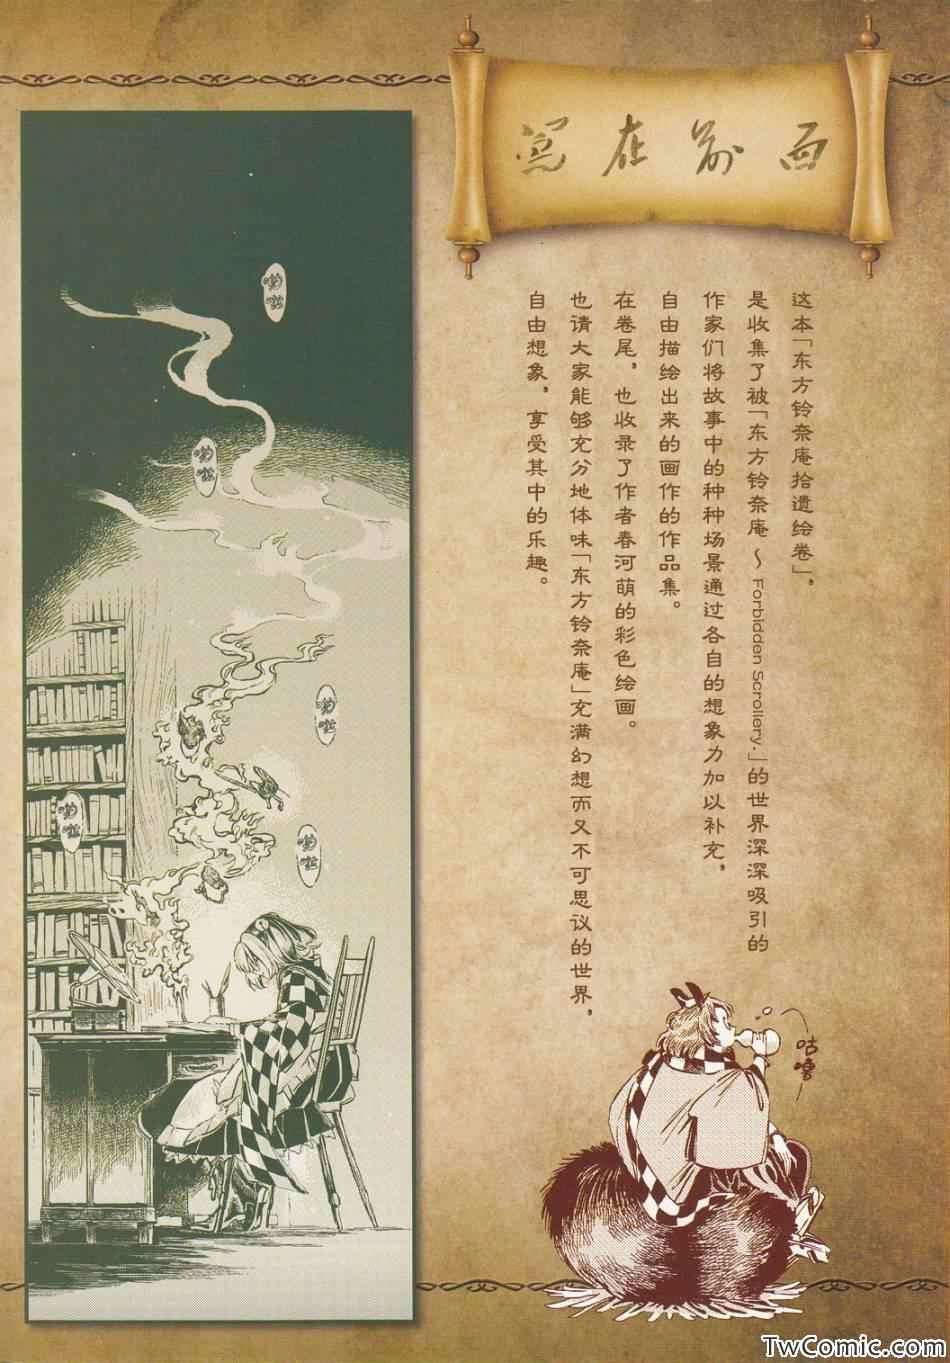 写在前面
这本「东方铃奈庵拾遗绘卷」，
是收集了被「东方铃奈庵～Forbidden Scrollery.」的世界深深吸引的
作家们将故事中的种种场景通过各自的想象力加以补充，
自由描绘出来的画作的作品集。
在卷尾，也收录了作者春河萌的彩色绘画。
也请大家能够充分地体味「东方铃奈庵」充满幻想而又不可思议的世界，
自由想象，享受其中的乐趣。
咕噜
TwComic.com